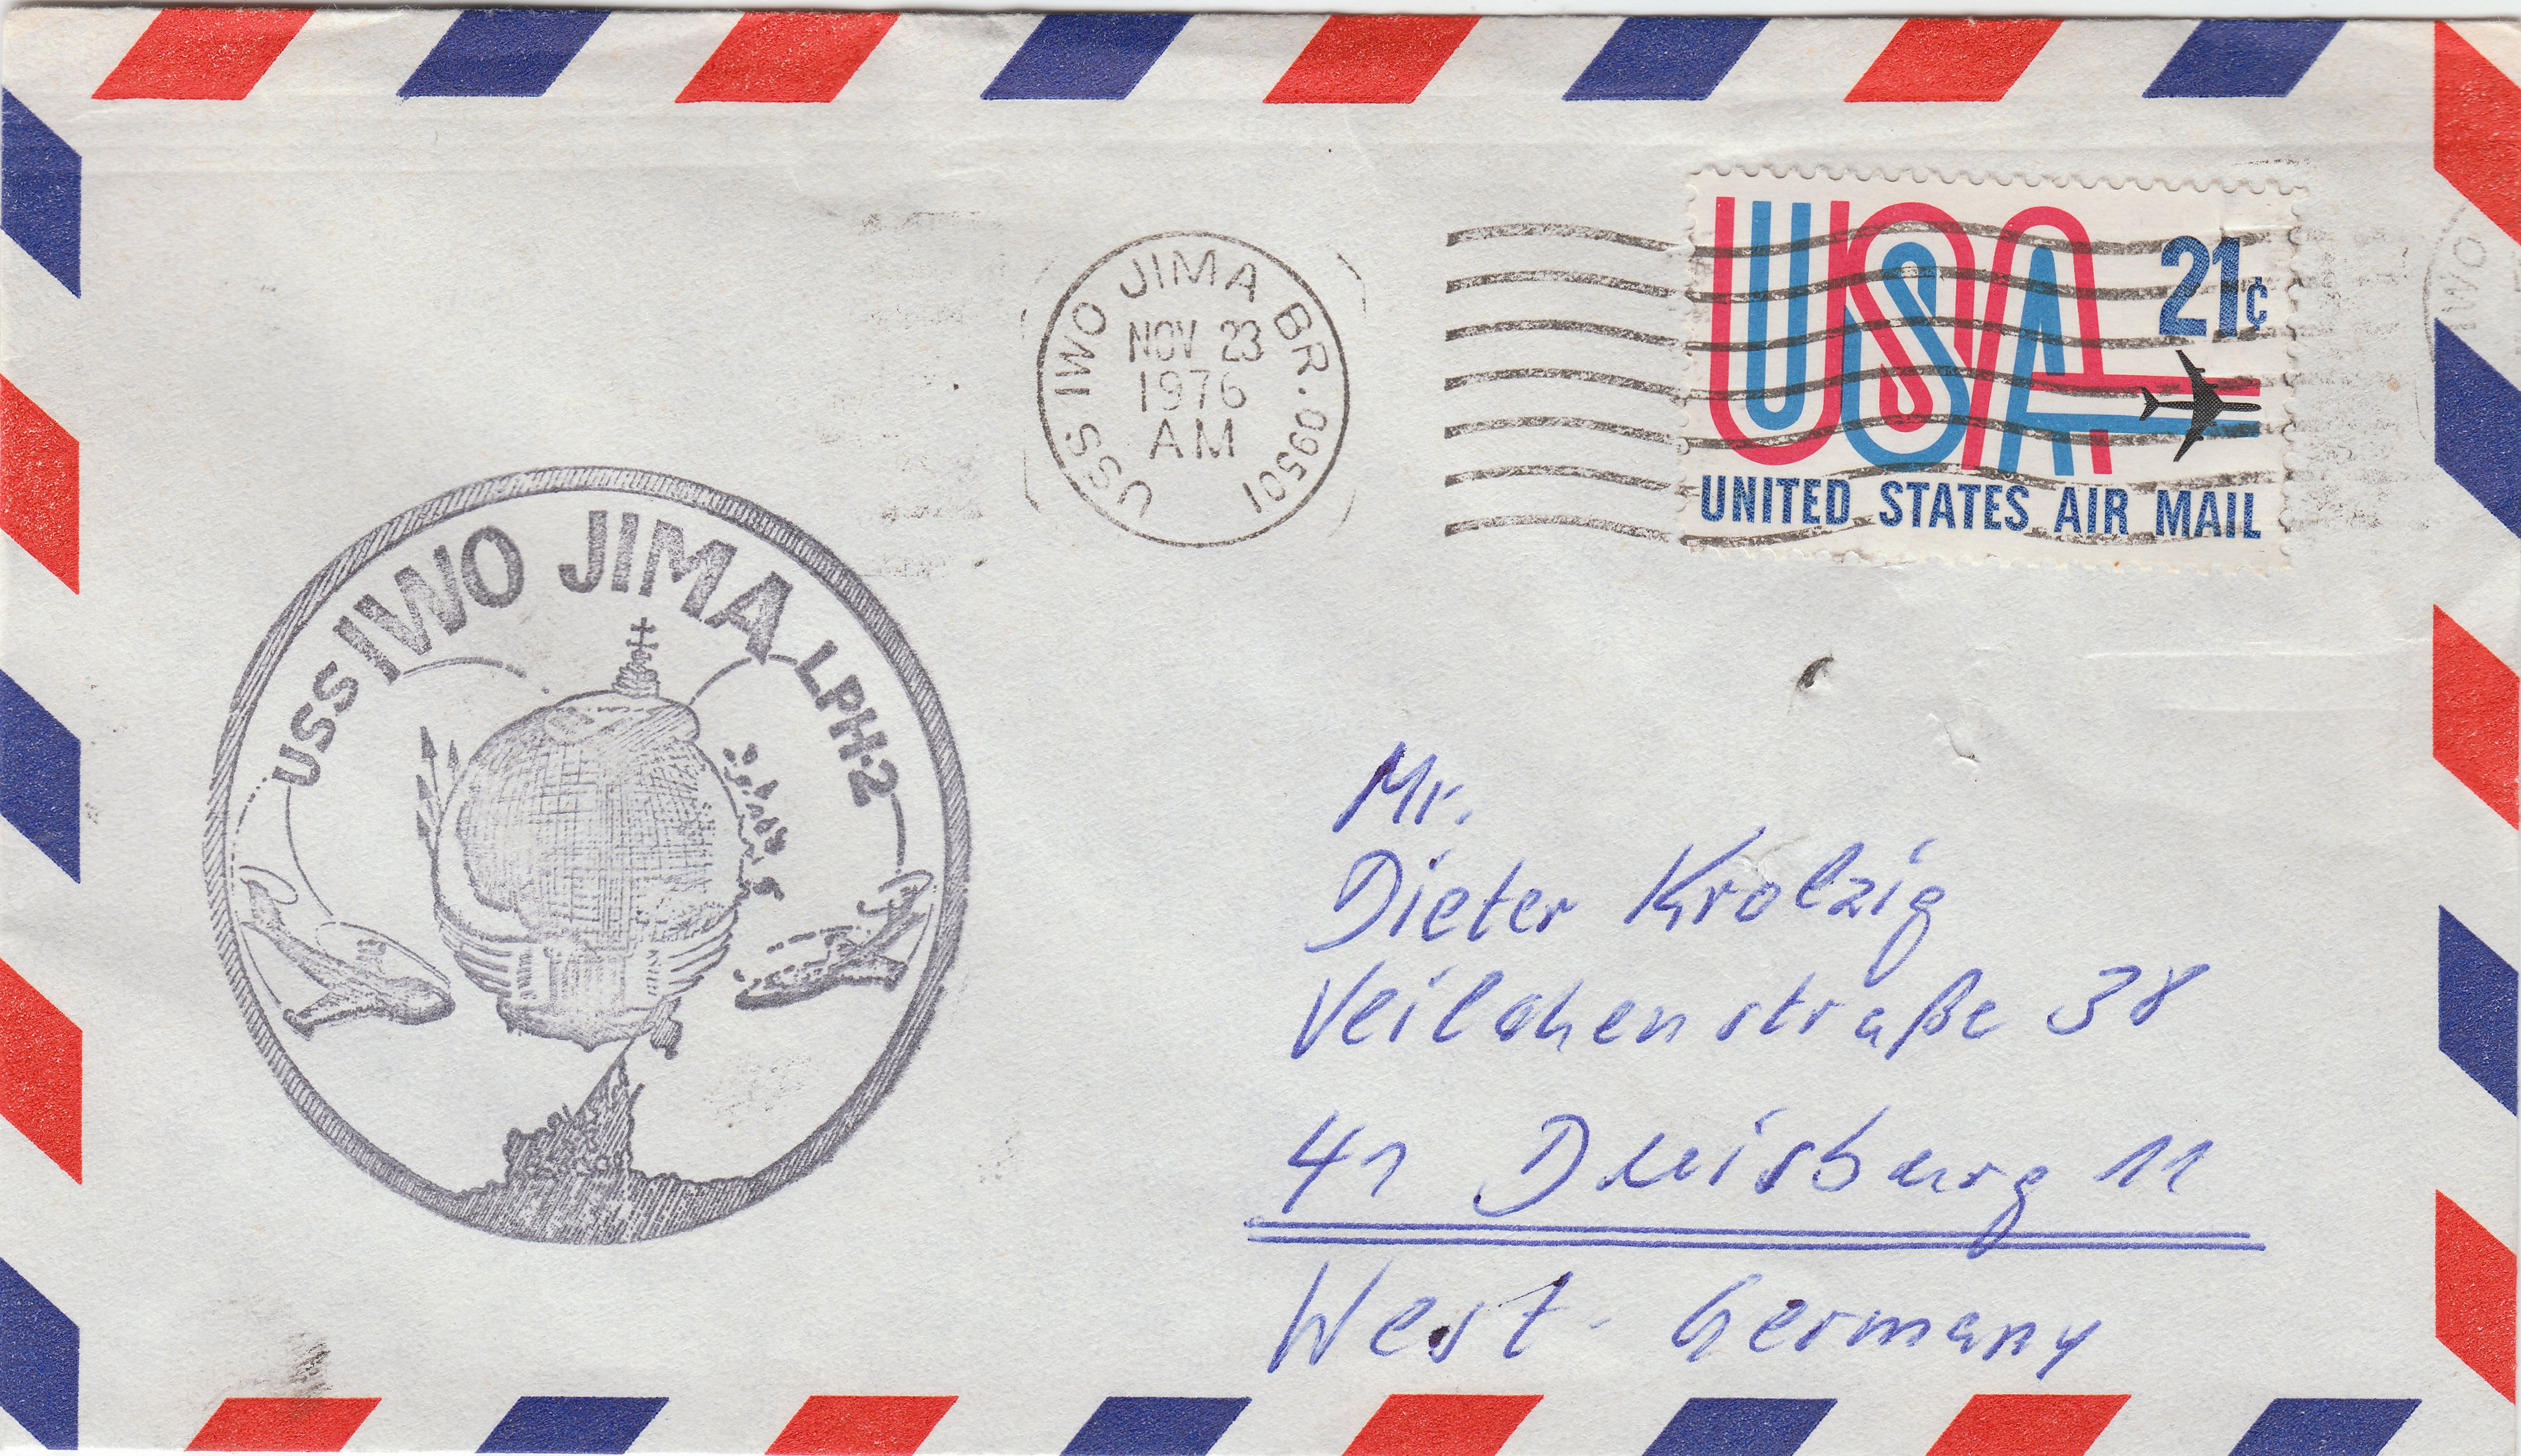 USS IWO JIMA BR. 09501
NOV 23
1976
AM
21¢
USA
UNITED STATES AIR MAIL
IWO
USS IWO JIMA LPH-2
Mr.
Dieter Krolzig
Veilchenstraße 38
41 Duisburg 11
West-Germany